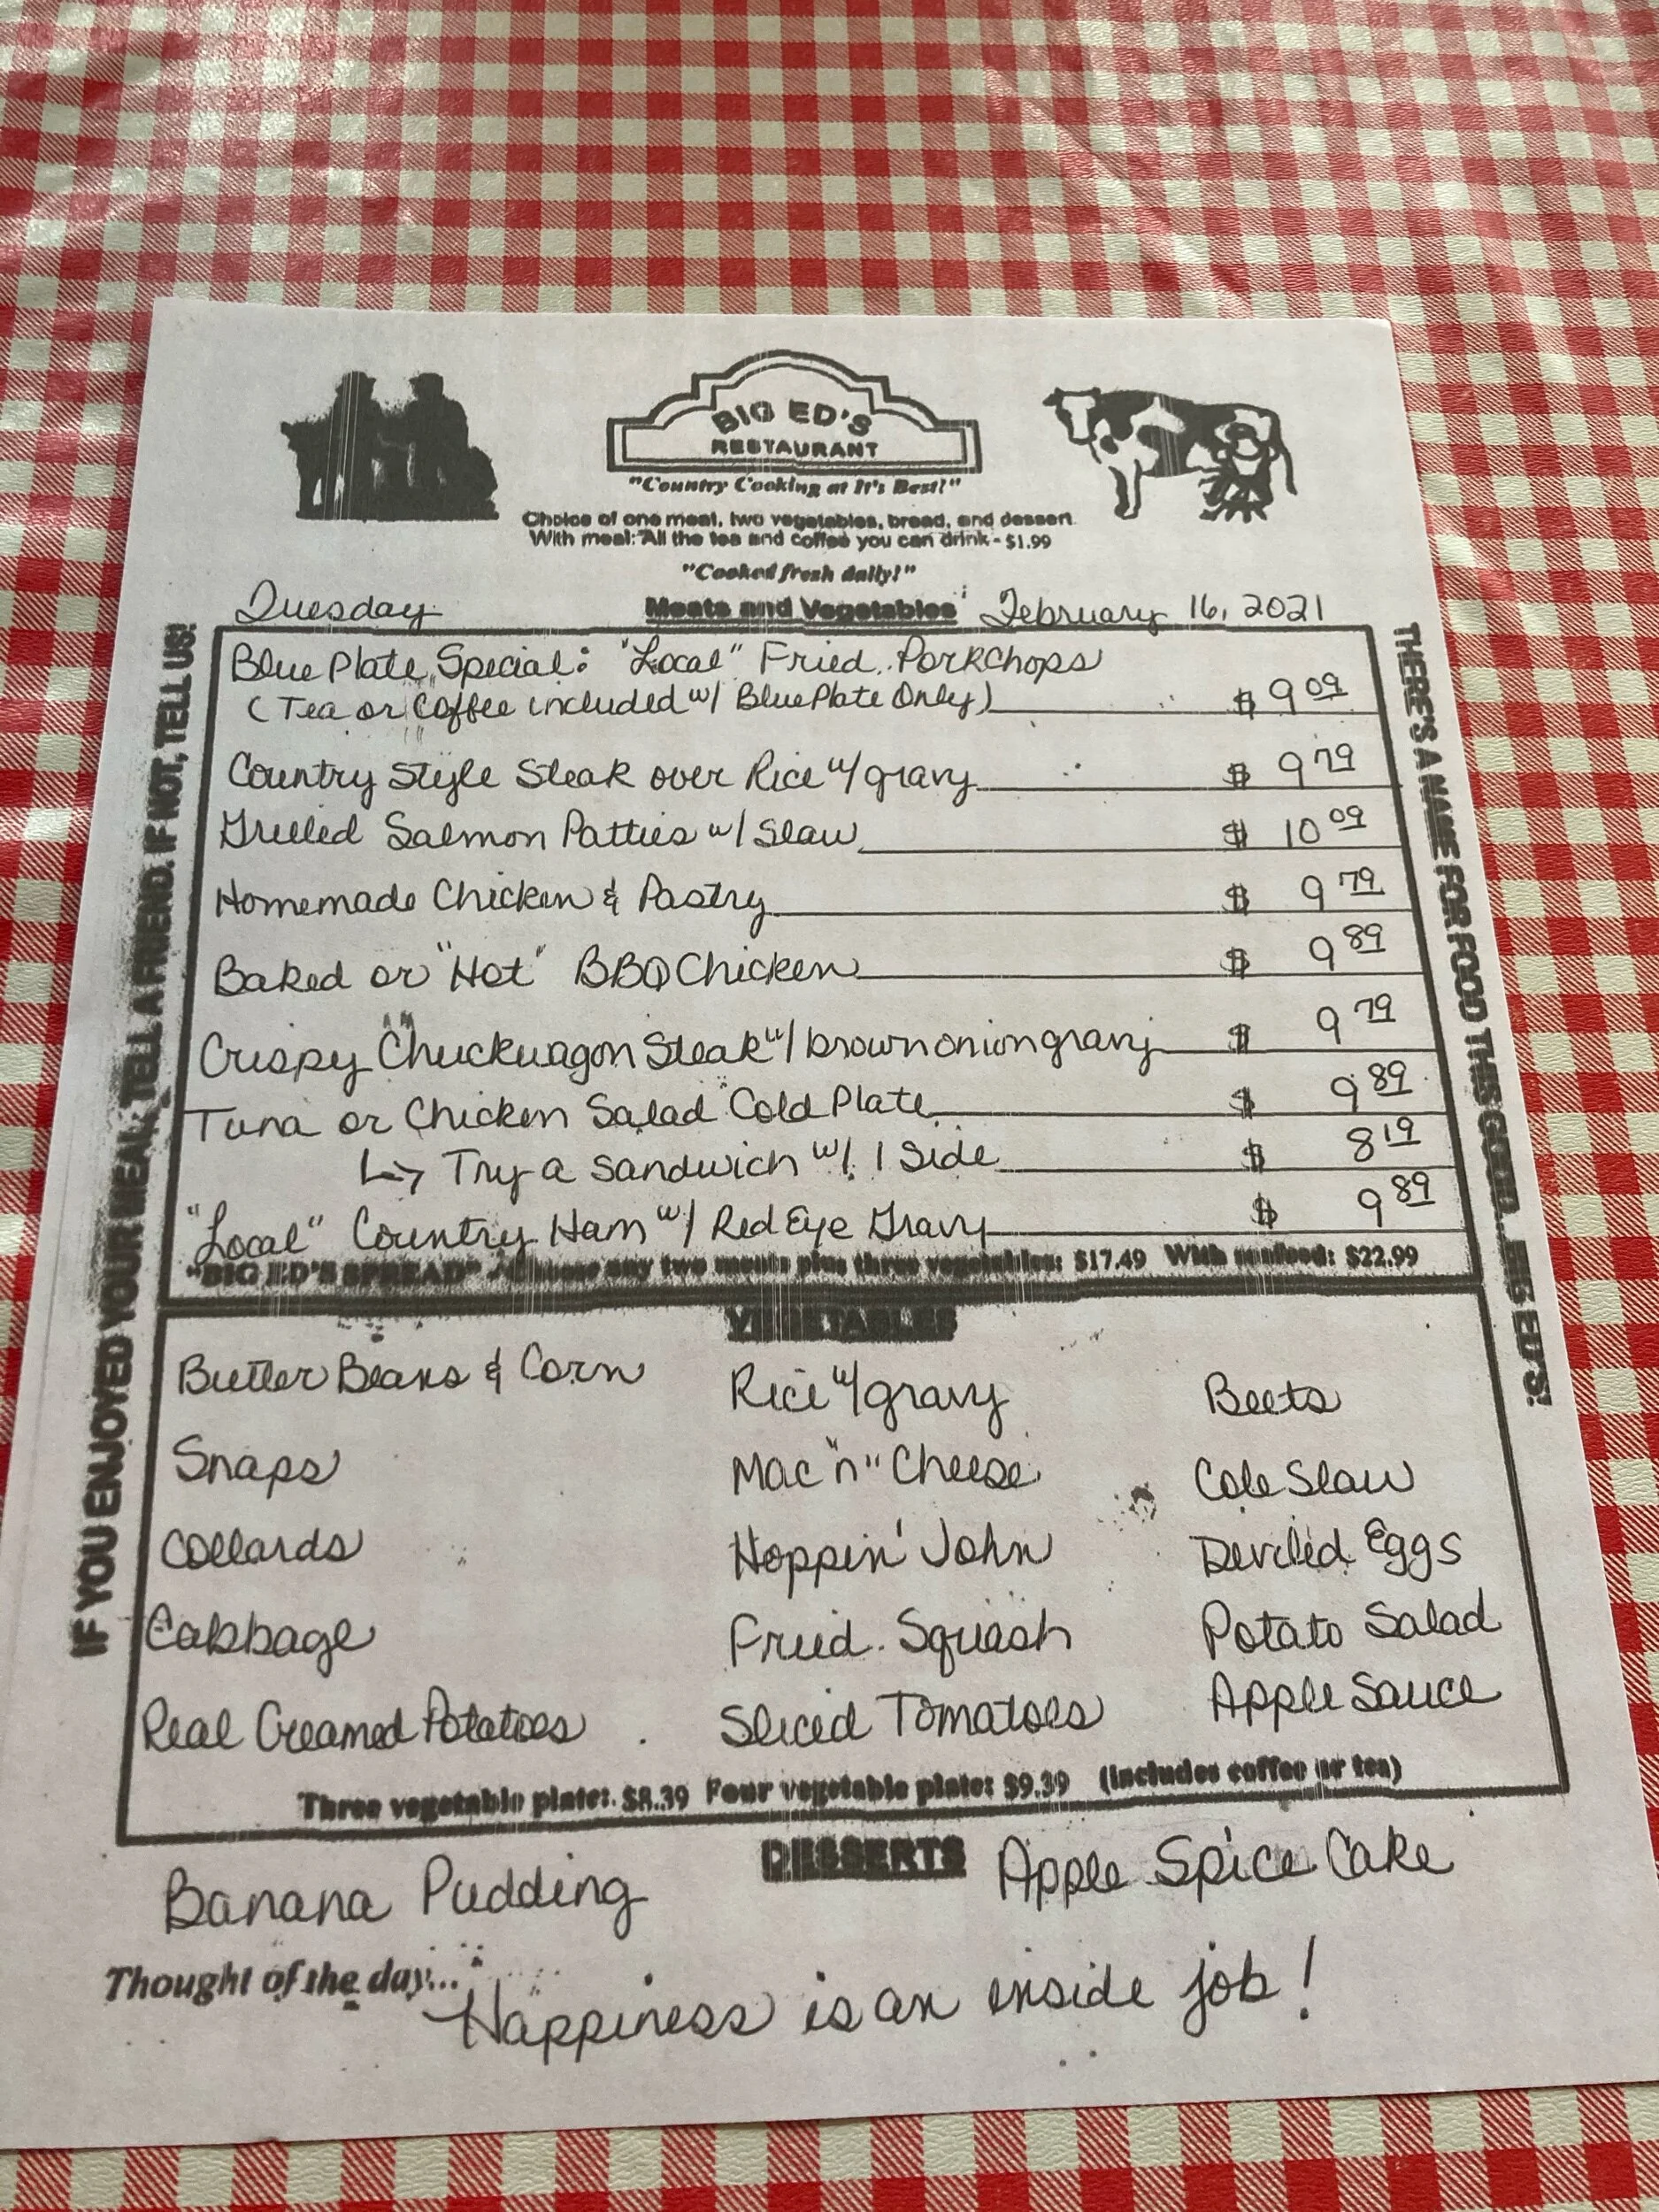 BIG ED'S
RESTAURANT
"Country Cooking at It's Best!"
Choice of one meat, two vegetables, bread, and dessert.
With meal: All the tea and coffee you can drink - $1.99
"Cooked fresh daily!"
Tuesday Meats and Vegetables February 16, 2021
IF YOU ENJOYED YOUR MEAL, TELL A FRIEND. IF NOT, TELL US!
THERE'S A NAME FOR FOOD THIS GOOD...BIG ED'S!
Blue Plate Special: "Local" Fried Porkchops
(Tea or Coffee included w/ Blue Plate Only) $ 9 09
Country Style Steak over Rice w/ gravy $ 9 79
Grilled Salmon Patties w/ Slaw $ 10 09
Homemade Chicken & Pastry $ 9 79
Baked or "Hot" BBQ Chicken $ 9 89
Crispy Chuckwagon Steak w/ brown onion gravy $ 9 79
Tuna or Chicken Salad Cold Plate $ 9 89
↳ Try a sandwich w/ 1 Side $ 8 19
"Local" Country Ham w/ Red Eye Gravy $ 9 89
"BIG ED'S SPREAD" any two meats plus three vegetables: $17.49 With seafood: $22.99
VEGETABLES
Butter Beans & Corn Rice w/ gravy Beets
Snaps Mac "n" Cheese Cole Slaw
Collards Hoppin' John Deviled Eggs
Cabbage Fried Squash Potato Salad
Real Creamed Potatoes Sliced Tomatoes Apple Sauce
Three vegetable plate: $8.39 Four vegetable plate: $9.39 (includes coffee or tea)
DESSERTS
Banana Pudding Apple Spice Cake
Thought of the day...
Happiness is an inside job!